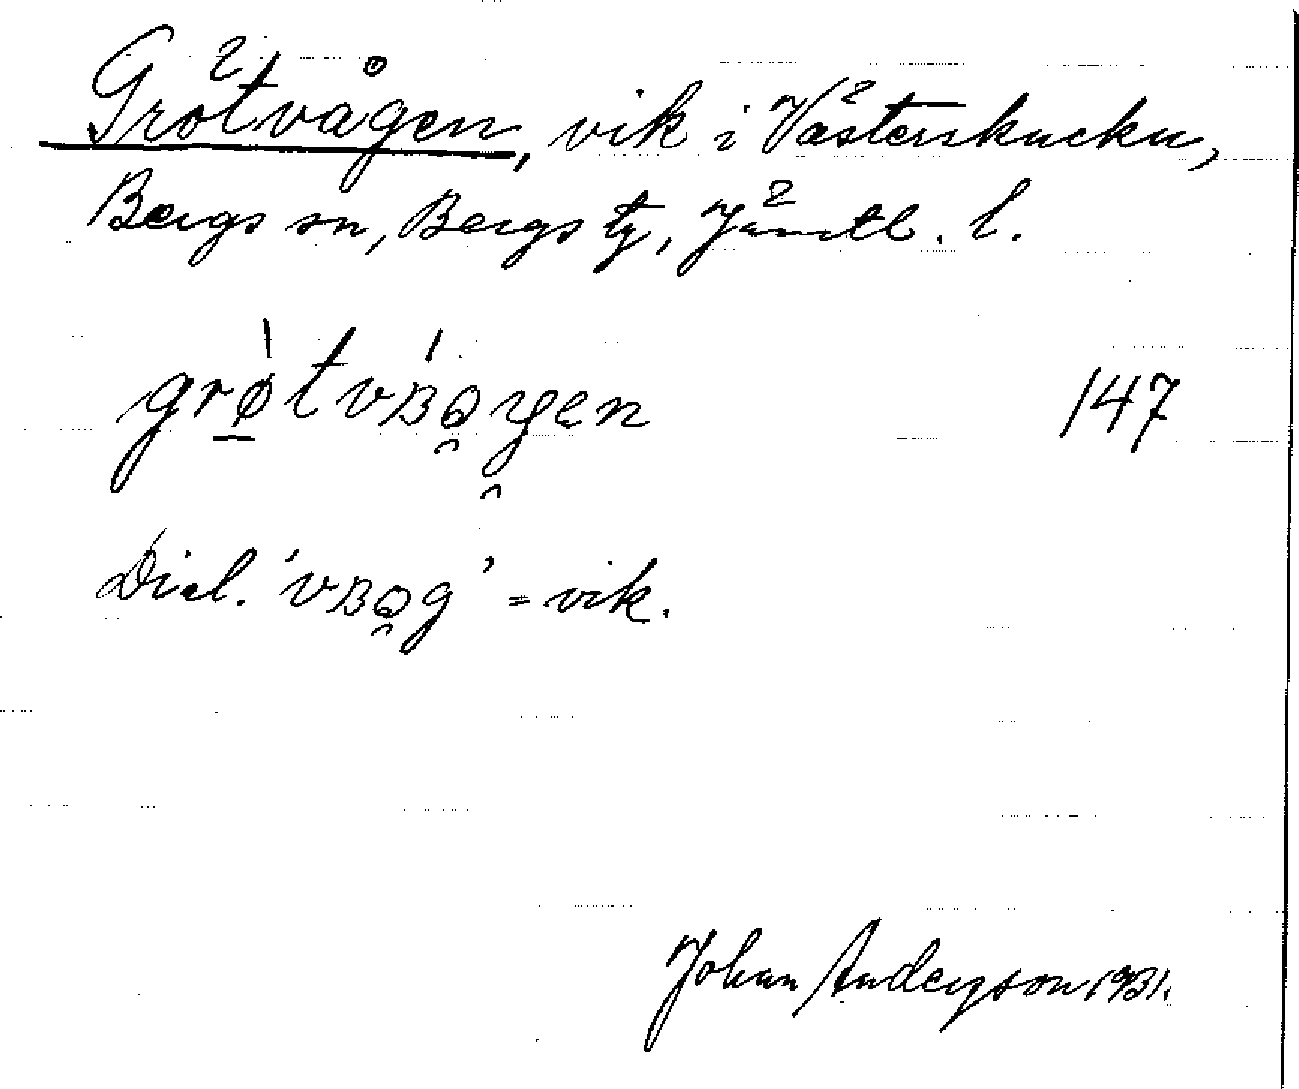 Grötvågen, vik i Västerskucku,
Bergs sn, Bergs tg, Jämtl. l.
grø̱̀tvʙo̯ɣen 147
Dial. 'vʙo̯g' = vik.
Johan Anderzson 1931.